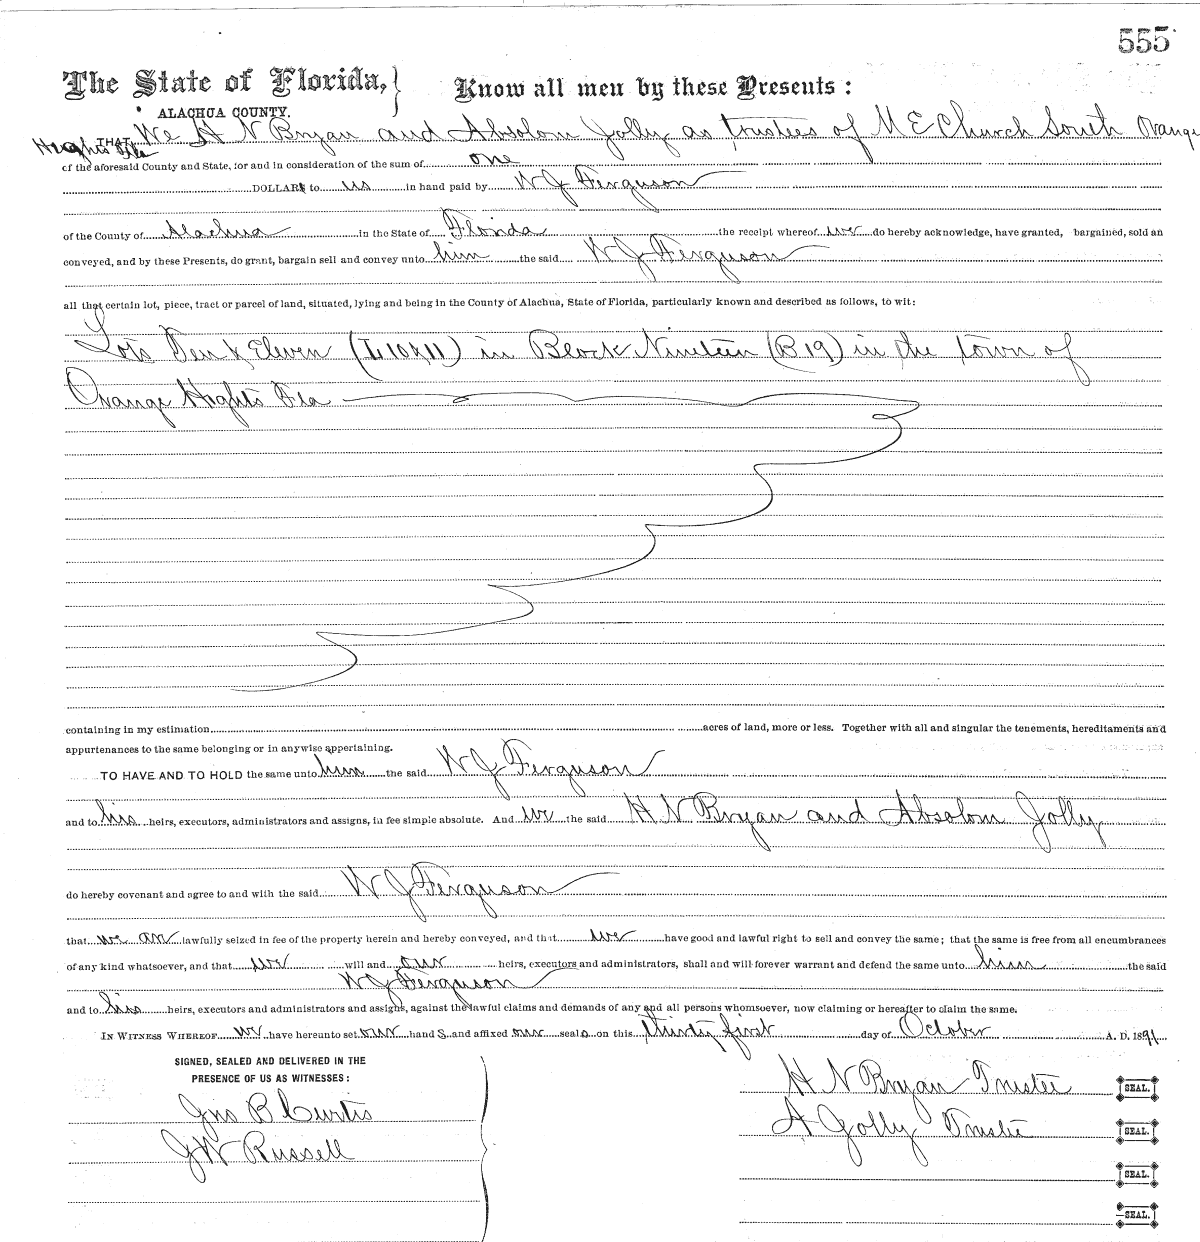 555
The State of Florida, Know all men by these Presents:
ALACHUA COUNTY.
THAT We H N Bryan and Absolom Jolly as trustees of M E Church South Orange
Heights Fla
of the aforesaid County and State, for and in consideration of the sum of one
DOLLAR to us in hand paid by W J Ferguson
of the County of Alachua in the State of Florida the receipt whereof we do hereby acknowledge, have granted, bargained, sold an
conveyed, and by these Presents, do grant, bargain sell and convey unto him the said W J Ferguson
all that certain lot, piece, tract or parcel of land, situated, lying and being in the County of Alachua, State of Florida, particularly known and described as follows, to wit:
Lots Ten & Eleven (L 10 & 11) in Block Nineteen (B 19) in the town of
Orange Hights Fla
containing in my estimation acres of land, more or less. Together with all and singular the tenements, hereditaments and
appurtenances to the same belonging or in anywise appertaining.
TO HAVE AND TO HOLD the same unto him the said W J Ferguson
and to his heirs, executors, administrators and assigns, in fee simple absolute. And we the said H N Bryan and Absolom Jolly
do hereby covenant and agree to and with the said W J Ferguson
that we are lawfully seized in fee of the property herein and hereby conveyed, and that we have good and lawful right to sell and convey the same; that the same is free from all encumbrances
of any kind whatsoever, and that we will and our heirs, executors and administrators, shall and will forever warrant and defend the same unto him the said
W J Ferguson
and to his heirs, executors and administrators and assigns, against the lawful claims and demands of any and all persons whomsoever, now claiming or hereafter to claim the same.
IN WITNESS WHEREOF we have hereunto set our hand s and affixed our seal s on this thirty first day of October A. D. 1891
SIGNED, SEALED AND DELIVERED IN THE
PRESENCE OF US AS WITNESSES:
Jno B Curtis
J W Russell
H N Bryan Trustee SEAL.
A Jolly Trustee SEAL.
SEAL.
SEAL.